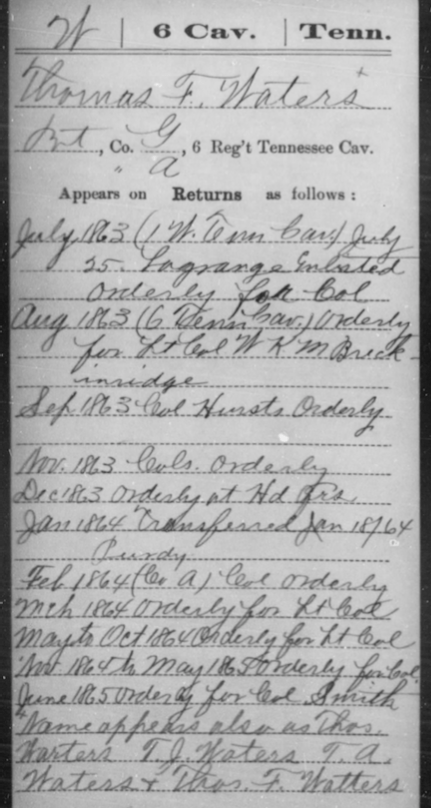 W | 6 Cav. | Tenn.
Thomas F. Waters
Pvt, Co. G, 6 Reg't Tennessee Cav.
" A
Appears on Returns as follows:
July 1863 (1 W. Tenn Cav.) July
25. Lagrange Enlisted
Orderly for Col
Aug 1863 (6 Tenn Cav.) Orderly
for Lt Col W K M Breck-
inridge
Sep 1863 Col Hursts Orderly
Nov. 1863 Cols. Orderly
Dec 1863 Orderly at Hd Qrs
Jan 1864 Transferred Jan 18/64
Purdy
Feb 1864 (Co A) Col Orderly
Mch 1864 Orderly for Lt Col
May to Oct 1864 Orderly for Lt Col
Nov 1864 to May 1865 Orderly for Col.
June 1865 Orderly for Col Smith
Name appears also as Thos.
Warters T. J. Waters T. A.
Waters & Thos. F. Watters